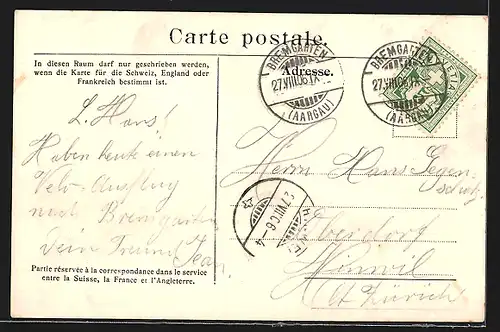 Carte postale.
In diesen Raum darf nur geschrieben werden,
wenn die Karte für die Schweiz, England oder
Frankreich bestimmt ist.
Adresse.
BREMGARTEN
27.VIII.06.IX
(AARGAU)
BREMGARTEN
27.VIII.06.IX
(AARGAU)
HELVETIA
L. Hans!
Haben heute einen
Velo-Ausflug
nach Bremgarten
Dein Freund Jean.
Herrn Hans Gegen-
schatz
Oberdorf
Hinwil
Ct. Zürich
HINWIL
Partie réservée à la correspondance dans le service
entre la Suisse, la France et l'Angleterre.